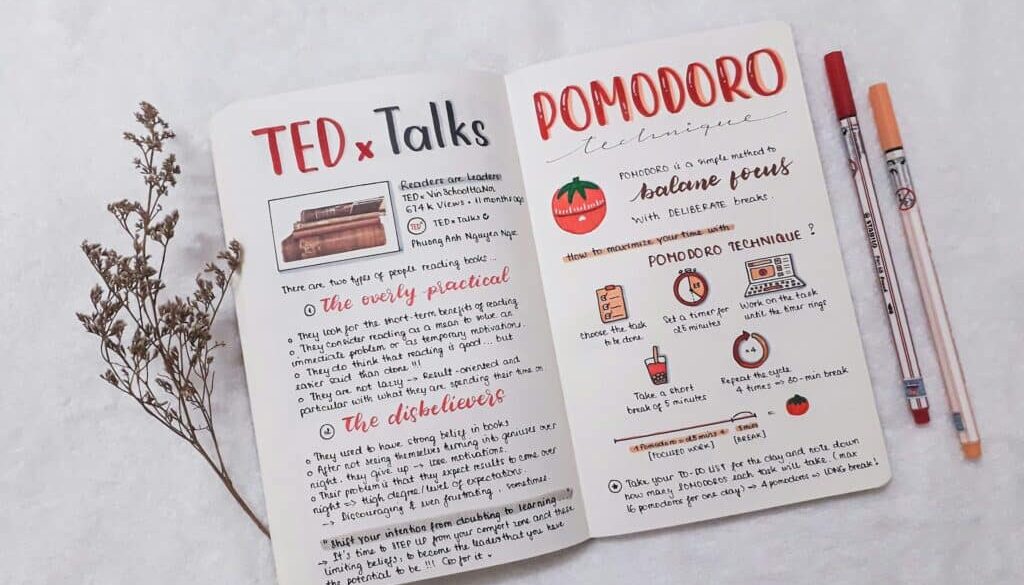 TED x Talks
Readers are Leaders
TEDx VinSchoolHanoi
674k Views • 11 months ago
TEDx Talks
Phuong Anh Nguyen Ngoc
There are two types of people reading books...
1 The overly practical
They look for the short-term benefits of reading
They consider reading as a mean to solve an
immediate problem or as temporary motivations.
They do think that reading is good ... but
easier said than done !!!
They are not lazy → Result-oriented and
particular with what they are spending their time on.
2 The disbelievers
They used to have strong belief in books
After not seeing themselves turning into geniuses over
night, they give up → lose motivations.
Their problem is that they expect results to come over
night => High degree/level of expectations.
→ Discouraging & even frustrating, sometimes.
"Shift your intention from doubting to learning..."
→ It's time to STEP UP from your comfort zone and these
limiting beliefs, to become the leader that you have
the potential to be !!! Go for it.
POMODORO
technique
POMODORO is a simple method to
balane focus
With DELIBERATE breaks.
How to maximize your time with
POMODORO TECHNIQUE ?
choose the task
to be done.
Set a timer for
25 minutes
Work on the task
until the timer rings
Take a short
break of 5 minutes
×4
Repeat the cycle
4 times => 30-min break
1 Pomodoro = 25 mins + 5 min =
[FOCUSED WORK] [BREAK]
Take your TO-DO LIST for the day and note down
how many POMODOROS each task will take. (max
16 pomodoros for one day) → 4 pomodoros => LONG break!